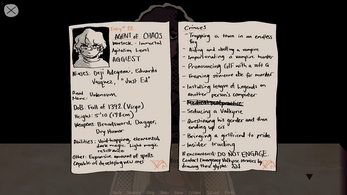 AGENT of CHAOS
Warlock - Immortal
Agitation Level
AGGIEST
Aliases: Deji Adeyemi, Eduardo
Vazquez, "Just Ed"
Held
Name: Halcyon
DoB: Fall of 1392 (Virgo)
Height: 5'10 (178cm)
Weapons: Broadsword, Dagger,
Dry Humor
Abilities: Void-hopping, elemental
dark magic, light magic
resistance
Other: Expansive amount of spells
Capable of developing new ones
Crimes
- Trapping a town in an endless
fog
- Aiding and abetting a vampire
- Impersonating a vampire hunter
- Pronouncing GIF with a soft G
- Framing someone else for murder
- Installing League of Legends on
another person's computer
- Medical malpractice
- Seducing a Valkyrie
- Buttering his gender and then
ending up cis
- Bringing a girlfriend to pride
- Insider trading
If Encountered: DO NOT ENGAGE.
Contact Emergency Valkyrie services by
drawing their glyphs